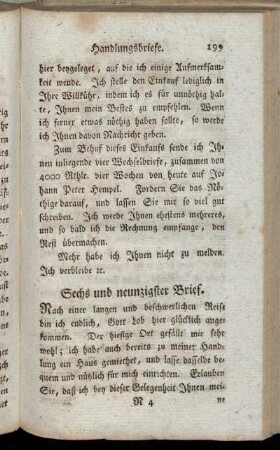 Handlungsbriefe. 199
hier beygeleget, auf die ich einige Aufmerksam-
keit wende. Ich stelle den Einkauf lediglich in
Ihre Willkühr, indem ich es für unnöthig hal-
te, Ihnen mein Bestes zu empfehlen. Wenn
ich ferner etwas nöthig haben sollte, so werde
ich Ihnen davon Nachricht geben.
Zum Behuf dieses Einkaufs sende ich Ih-
nen inliegende vier Wechselbriefe, zusammen von
4000 Rthlr. vier Wochen von heute auf Jo-
hann Peter Hempel. Fordern Sie das Nö-
thige darauf, und lassen Sie mir so viel gut
schreiben. Ich werde Ihnen ehestens mehreres,
und so bald ich die Rechnung empfange, den
Rest übermachen.
Mehr habe ich Ihnen nicht zu melden.
Ich verbleibe ꝛc.
Sechs und neunzigster Brief.
Nach einer langen und beschwerlichen Reise
bin ich endlich, Gott Lob hier glücklich ange-
kommen. Der hiesige Ort gefällt mir sehr
wohl; ich habe auch bereits zu meiner Handl-
lung ein Haus gemiethet, und lasse dasselbe be-
quem und nützlich für mich einrichten. Erlauben
Sie, daß ich bey dieser Gelegenheit Ihnen mei-
N 4 ne